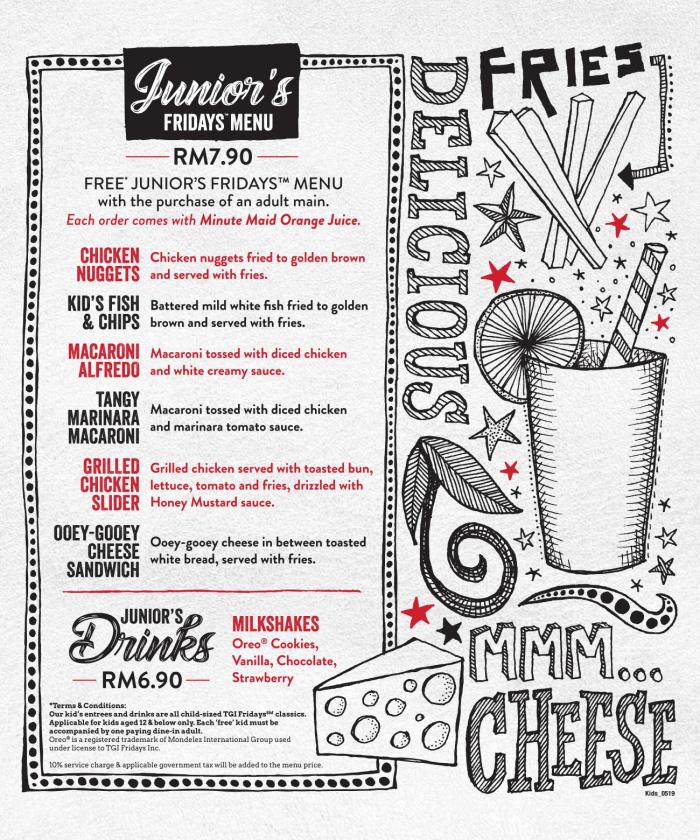 Junior's
FRIDAYS™ MENU
RM7.90
FREE* JUNIOR'S FRIDAYS™ MENU
with the purchase of an adult main.
Each order comes with Minute Maid Orange Juice.
CHICKEN
NUGGETS
Chicken nuggets fried to golden brown
and served with fries.
KID'S FISH
& CHIPS
Battered mild white fish fried to golden
brown and served with fries.
MACARONI
ALFREDO
Macaroni tossed with diced chicken
and white creamy sauce.
TANGY
MARINARA
MACARONI
Macaroni tossed with diced chicken
and marinara tomato sauce.
GRILLED
CHICKEN
SLIDER
Grilled chicken served with toasted bun,
lettuce, tomato and fries, drizzled with
Honey Mustard sauce.
OOEY-GOOEY
CHEESE
SANDWICH
Ooey-gooey cheese in between toasted
white bread, served with fries.
JUNIOR'S
Drinks
RM6.90
MILKSHAKES
Oreo® Cookies,
Vanilla, Chocolate,
Strawberry
*Terms & Conditions:
Our kid's entrees and drinks are all child-sized TGI Fridays℠ classics.
Applicable for kids aged 12 & below only. Each 'free' kid must be
accompanied by one paying dine-in adult.
Oreo® is a registered trademark of Mondelez International Group used
under license to TGI Fridays Inc.
10% service charge & applicable government tax will be added to the menu price.
DELICIOUS
FRIES
MMM...
CHEESE
Kids_0519